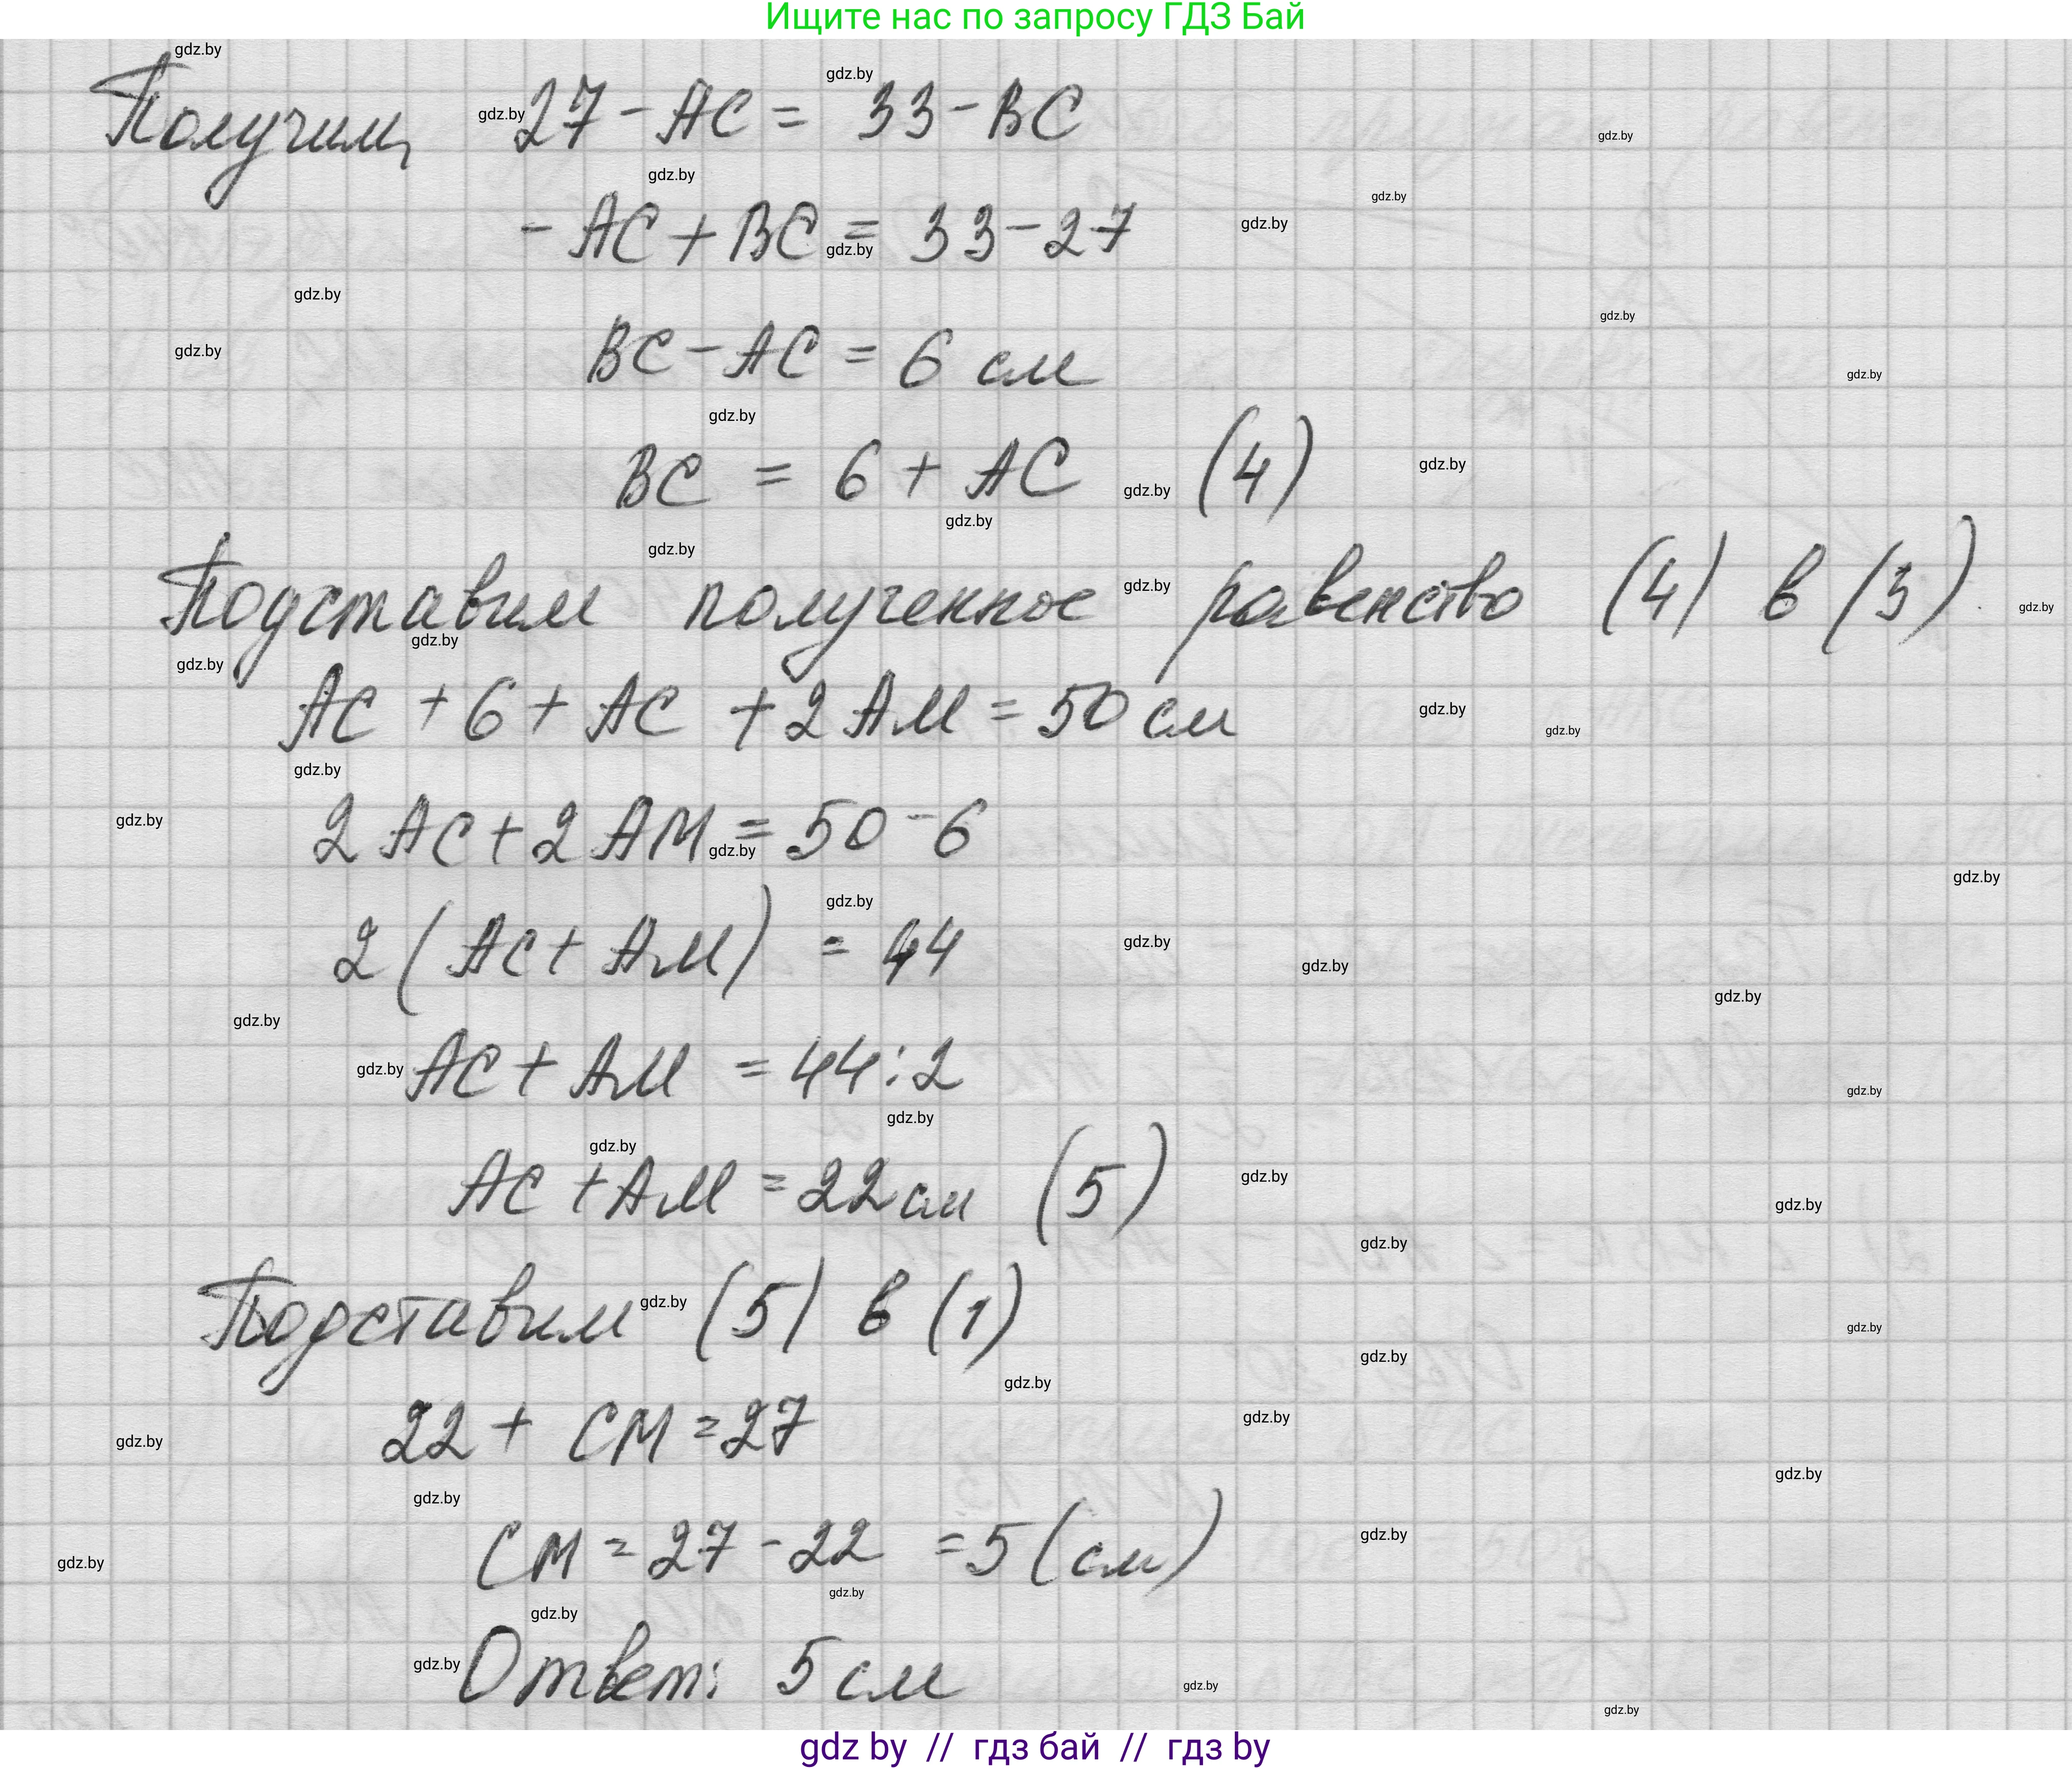 Ищите нас по запросу ГДЗ Бай
Получим, 27 - AC = 33 - BC
- AC + BC = 33 - 27
BC - AC = 6 см
BC = 6 + AC (4)
Подставим полученное равенство (4) в (3).
AC + 6 + AC + 2 AM = 50 см
2 AC + 2 AM = 50 - 6
2 (AC + AM) = 44
AC + AM = 44 : 2
AC + AM = 22 см (5)
Подставим (5) в (1)
22 + CM = 27
CM = 27 - 22 = 5 (см)
Ответ: 5 см
gdz by // гдз бай // гдз by